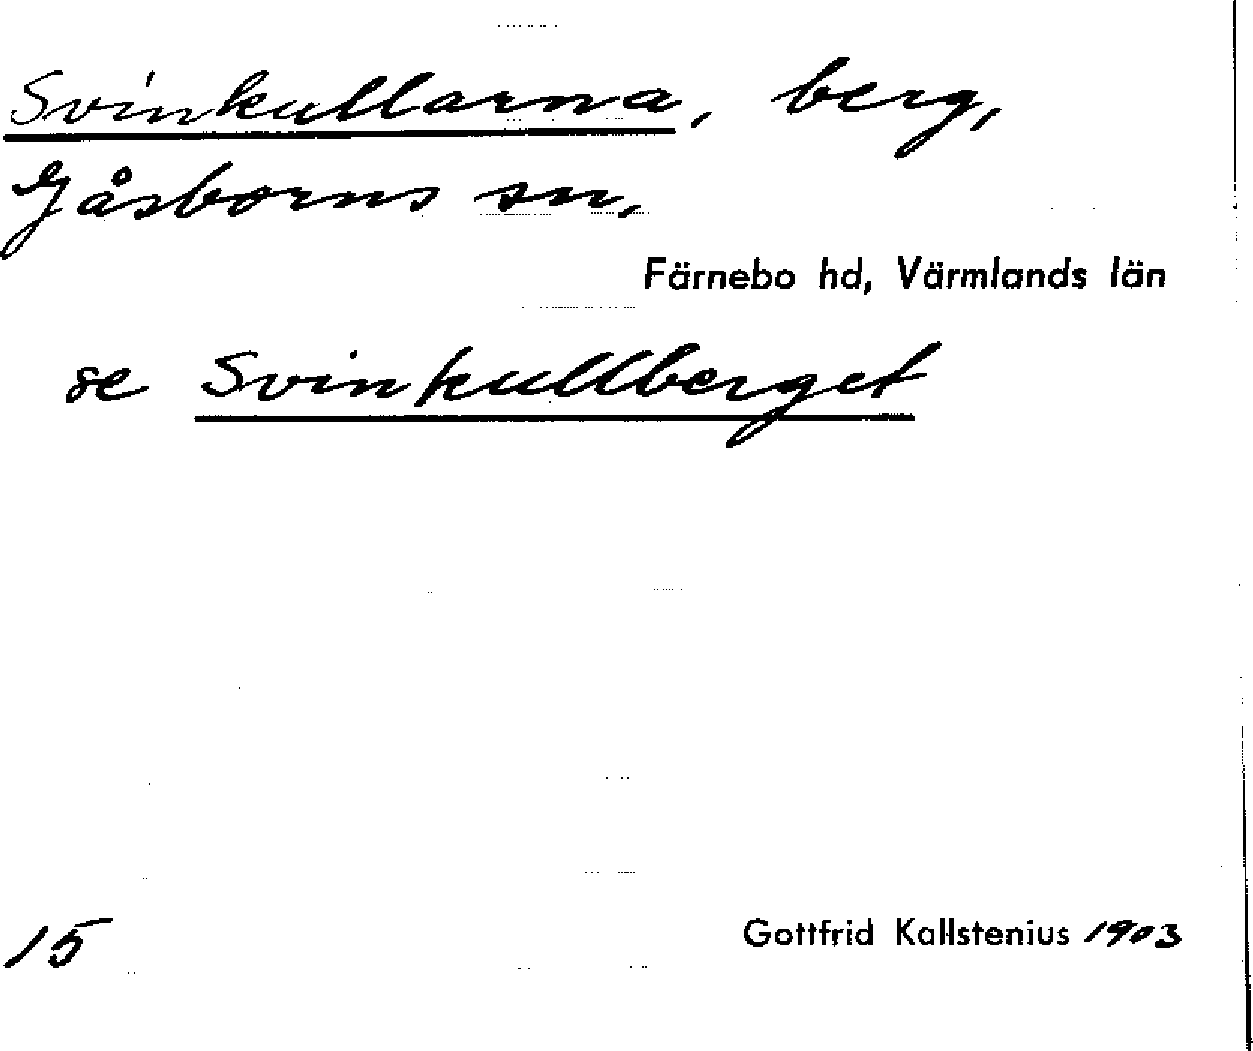 Svinkullarna, berg,
Gåsborns sn,
Färnebo hd, Värmlands län
se Svinkullberget
15
Gottfrid Kallstenius 1903